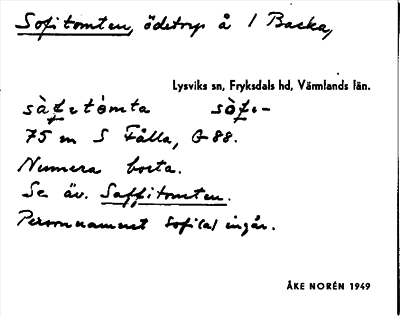 Sofitomten, ödetorp å 1 Backa,
Lysviks sn, Fryksdals hd, Värmlands län.
sàf̣ɩtòmta sòf̣ɩ-
75 m S Fålla, G 88.
Numera borta.
Se äv. Saffitomten.
Personnamnet Sofi(a) ingår.
ÅKE NORÉN 1949